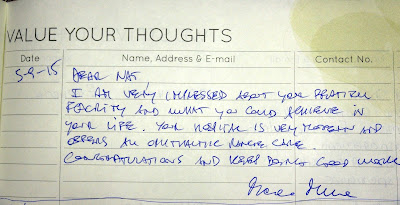 VALUE YOUR THOUGHTS
Date Name, Address & E-mail Contact No.
5-9-15 DEAR NAT,
I AM VERY IMPRESSED ABOUT YOUR
FACILITY AND WHAT YOU COULD ACHIEVE IN
YOUR LIFE. YOUR HOSPITAL IS VERY MODERN AND
OFFERS AN RANGE CARE.
CONGRATULATIONS AND KEEP DOING GOOD WORK